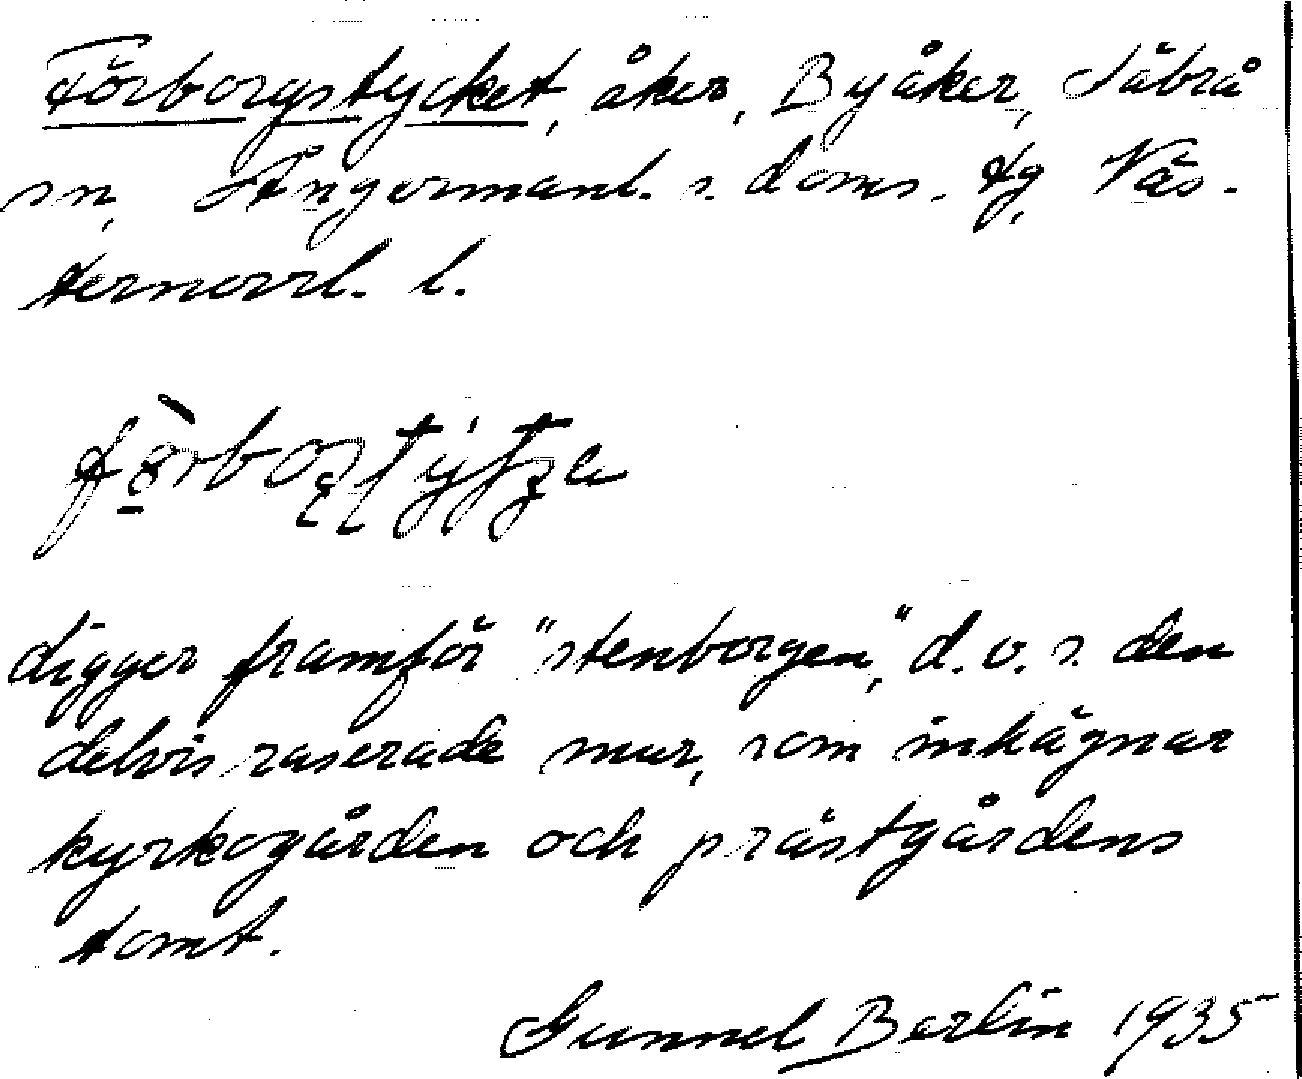 Förborgstycket, åker, Byåker, Säbrå
sn, Ångermanl. s. doms. tg, Väs-
ternorrl. l.
ligger framför "stenborgen," d.v.s. den
delvis raserade mur, som inhägnar
kyrkogården och prästgårdens
tomt.
Gunnel Berlin 1935